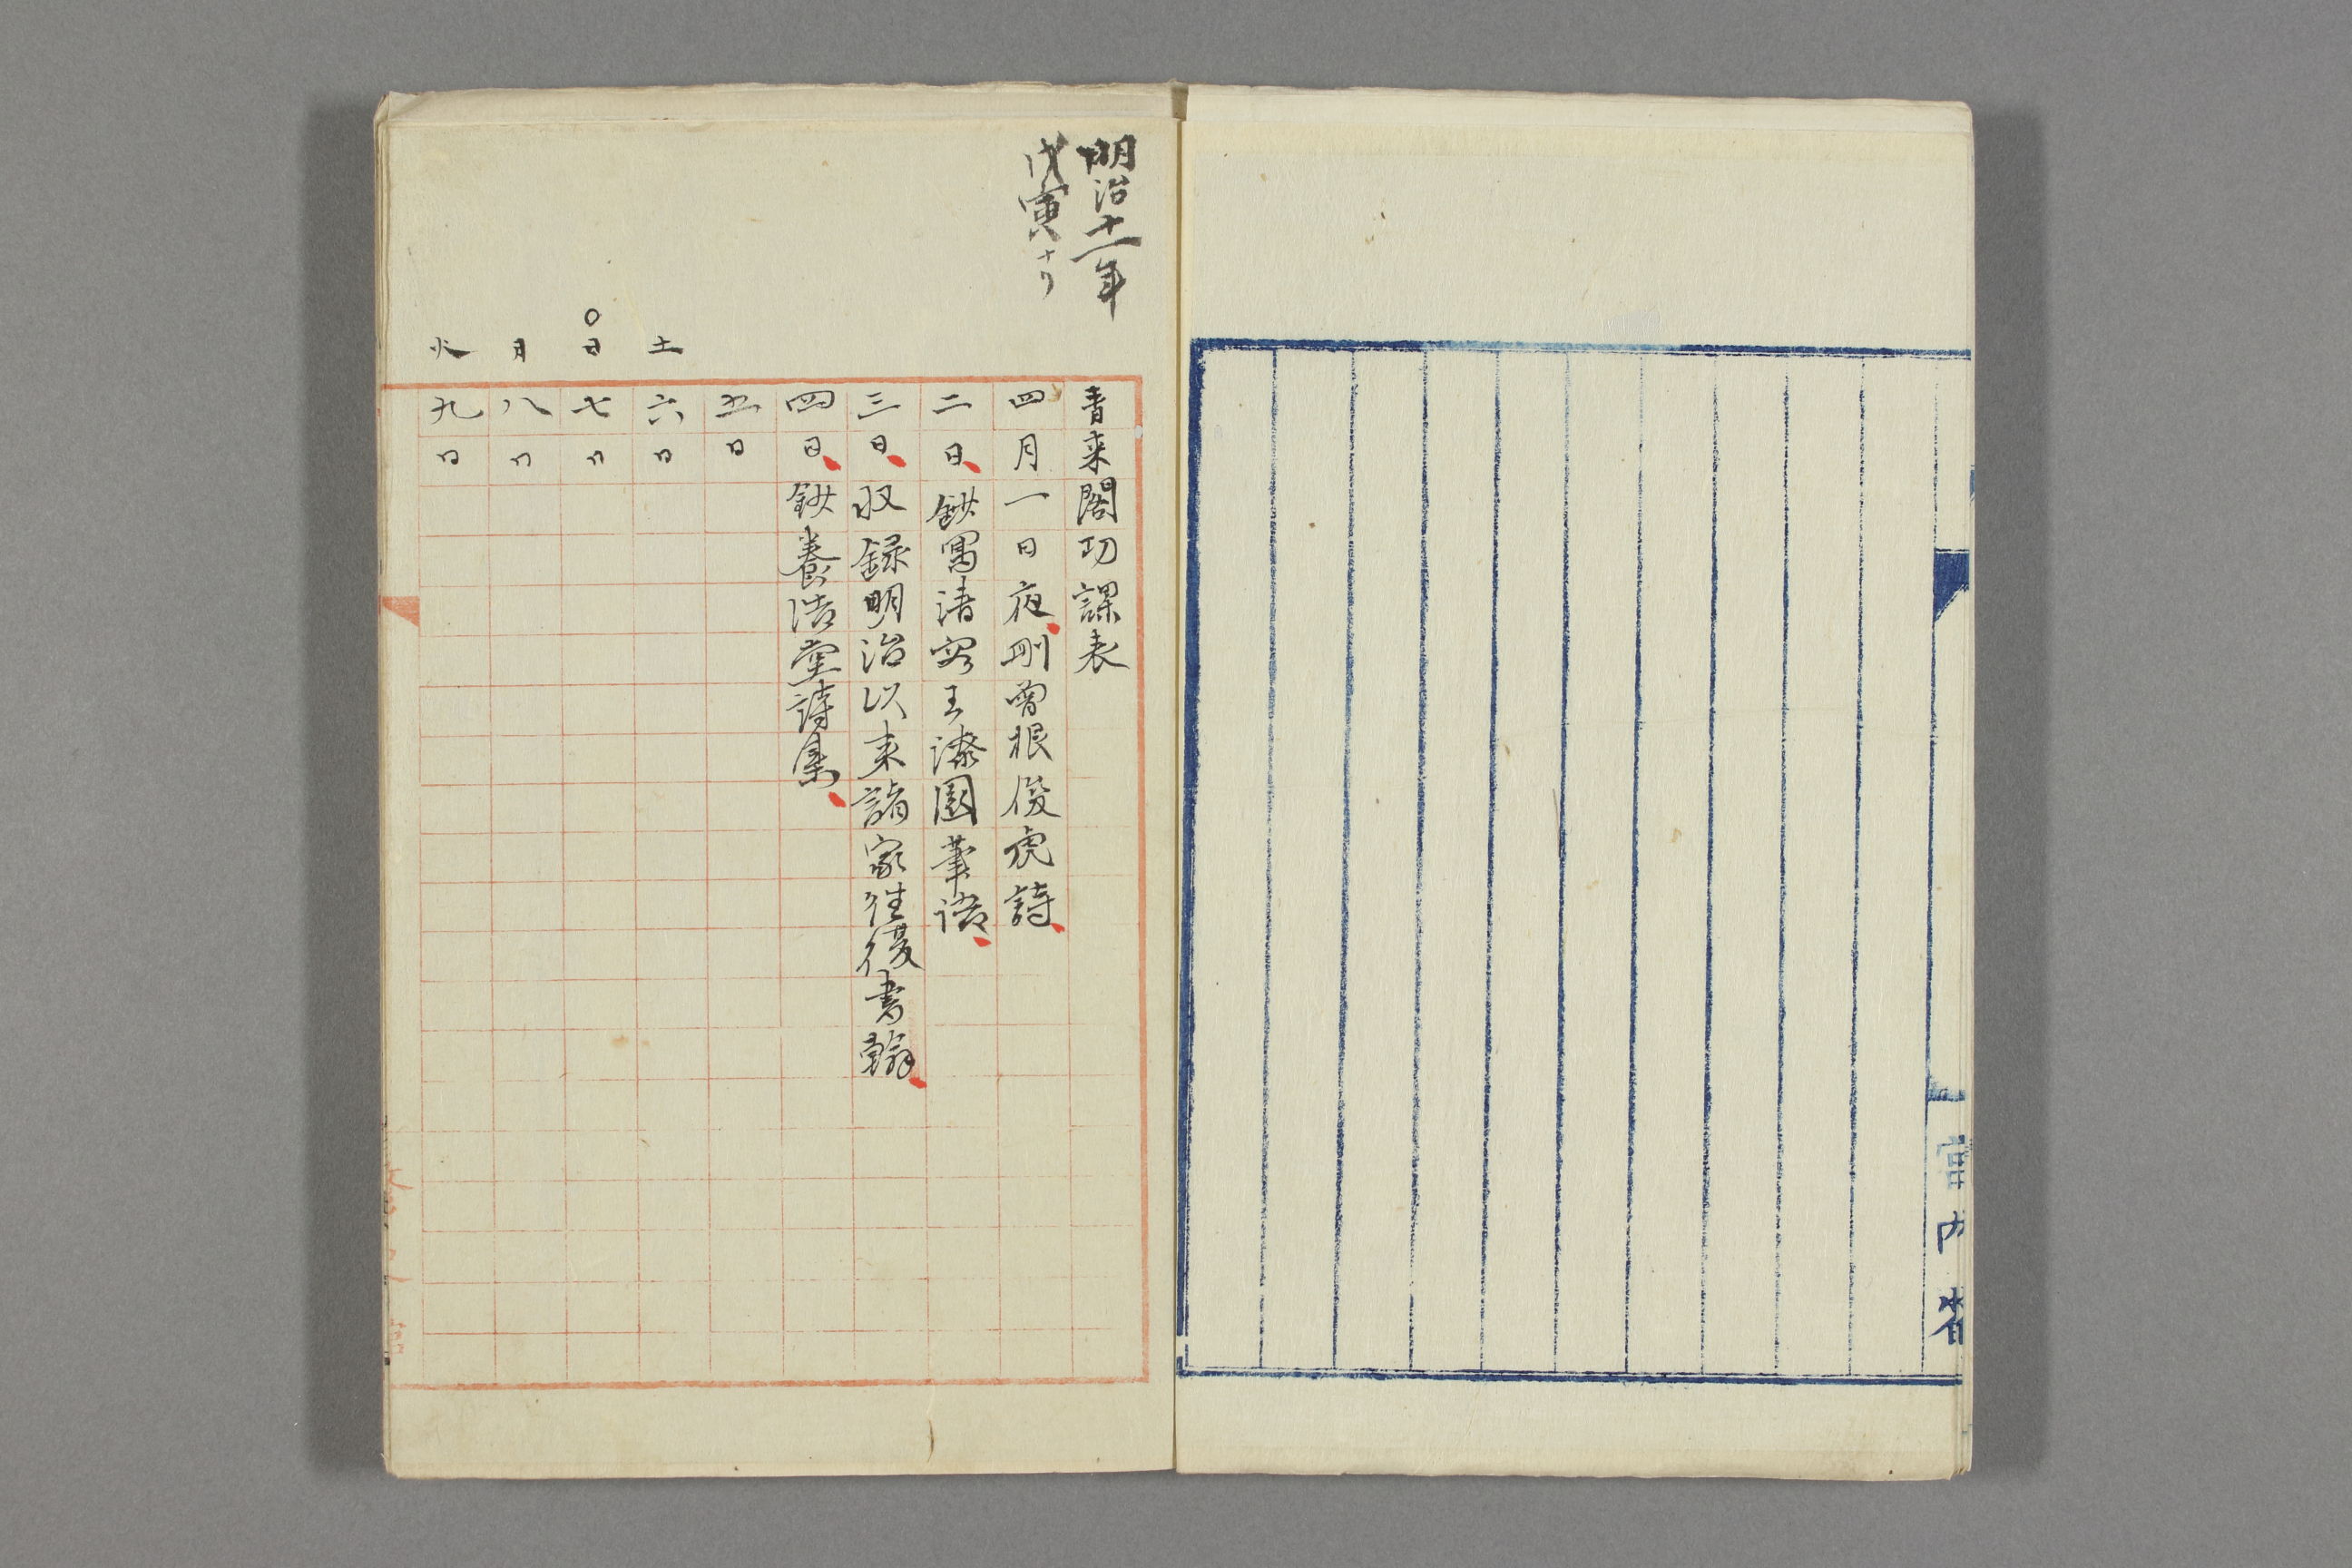 宮内省
明治十一年
戊寅ナリ
青来閣功課表
四月一日夜、刪曽根俊虎詩、
二日、鈔寓清客王漆園筆語、
三日、収録明治以来諸家往復書翰、
四日、鈔養浩堂詩集、
五日
土 六日
○日 七日
月 八日
火 九日